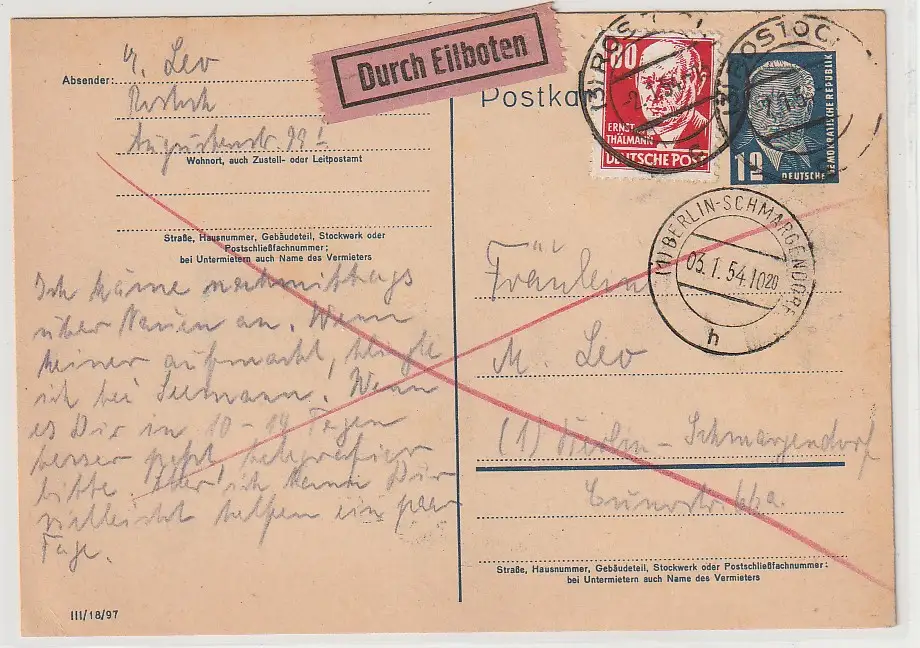 Durch Eilboten
Absender:
Leo
Rostock
Augustenstr. 99
Wohnort, auch Zustell- oder Leitpostamt
Straße, Hausnummer, Gebäudeteil, Stockwerk oder
Postschließfachnummer;
bei Untermietern auch Name des Vermieters
Ich käme nachmittags
über Nauen an. Wenn
keiner aufmacht, klingle
ich bei Seemann. Wenn
es Dir in 10 - 14 Tagen
besser paßt, telegrafier
bitte. Aber ich kann Dir
vielleicht helfen ein paar
Tage.
III/18/97
Postka
80
ERNST
THÄLMANN
DEUTSCHE POST
ROSTOC
ROSTOC
12
DEUTSCHE
DEMOKRATISCHE REPUBLIK
(1) BERLIN-SCHMARGENDORF
03.1.54.10 20
h
Fräulein
M. Leo
(1) Berlin-Schmargendorf
Straße, Hausnummer, Gebäudeteil, Stockwerk oder Postschließfachnummer;
bei Untermietern auch Name des Vermieters